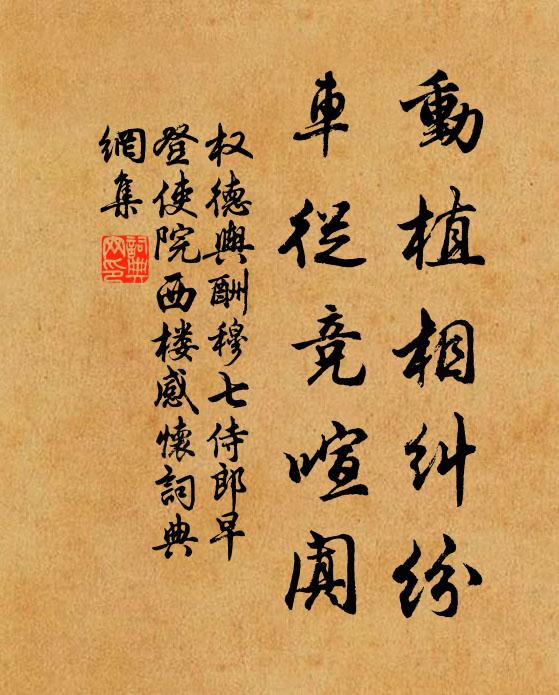 動植相糾紛
車從竞喧闐
权德輿酬穆七侍郎早
登使院西楼感懷詞典
網集
詞典
网印